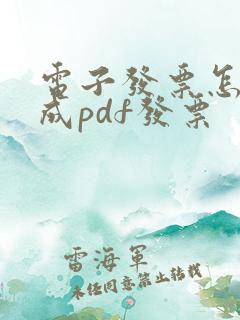 電子發票怎
成pdf發票
雷海軍
未經同意禁止轉載